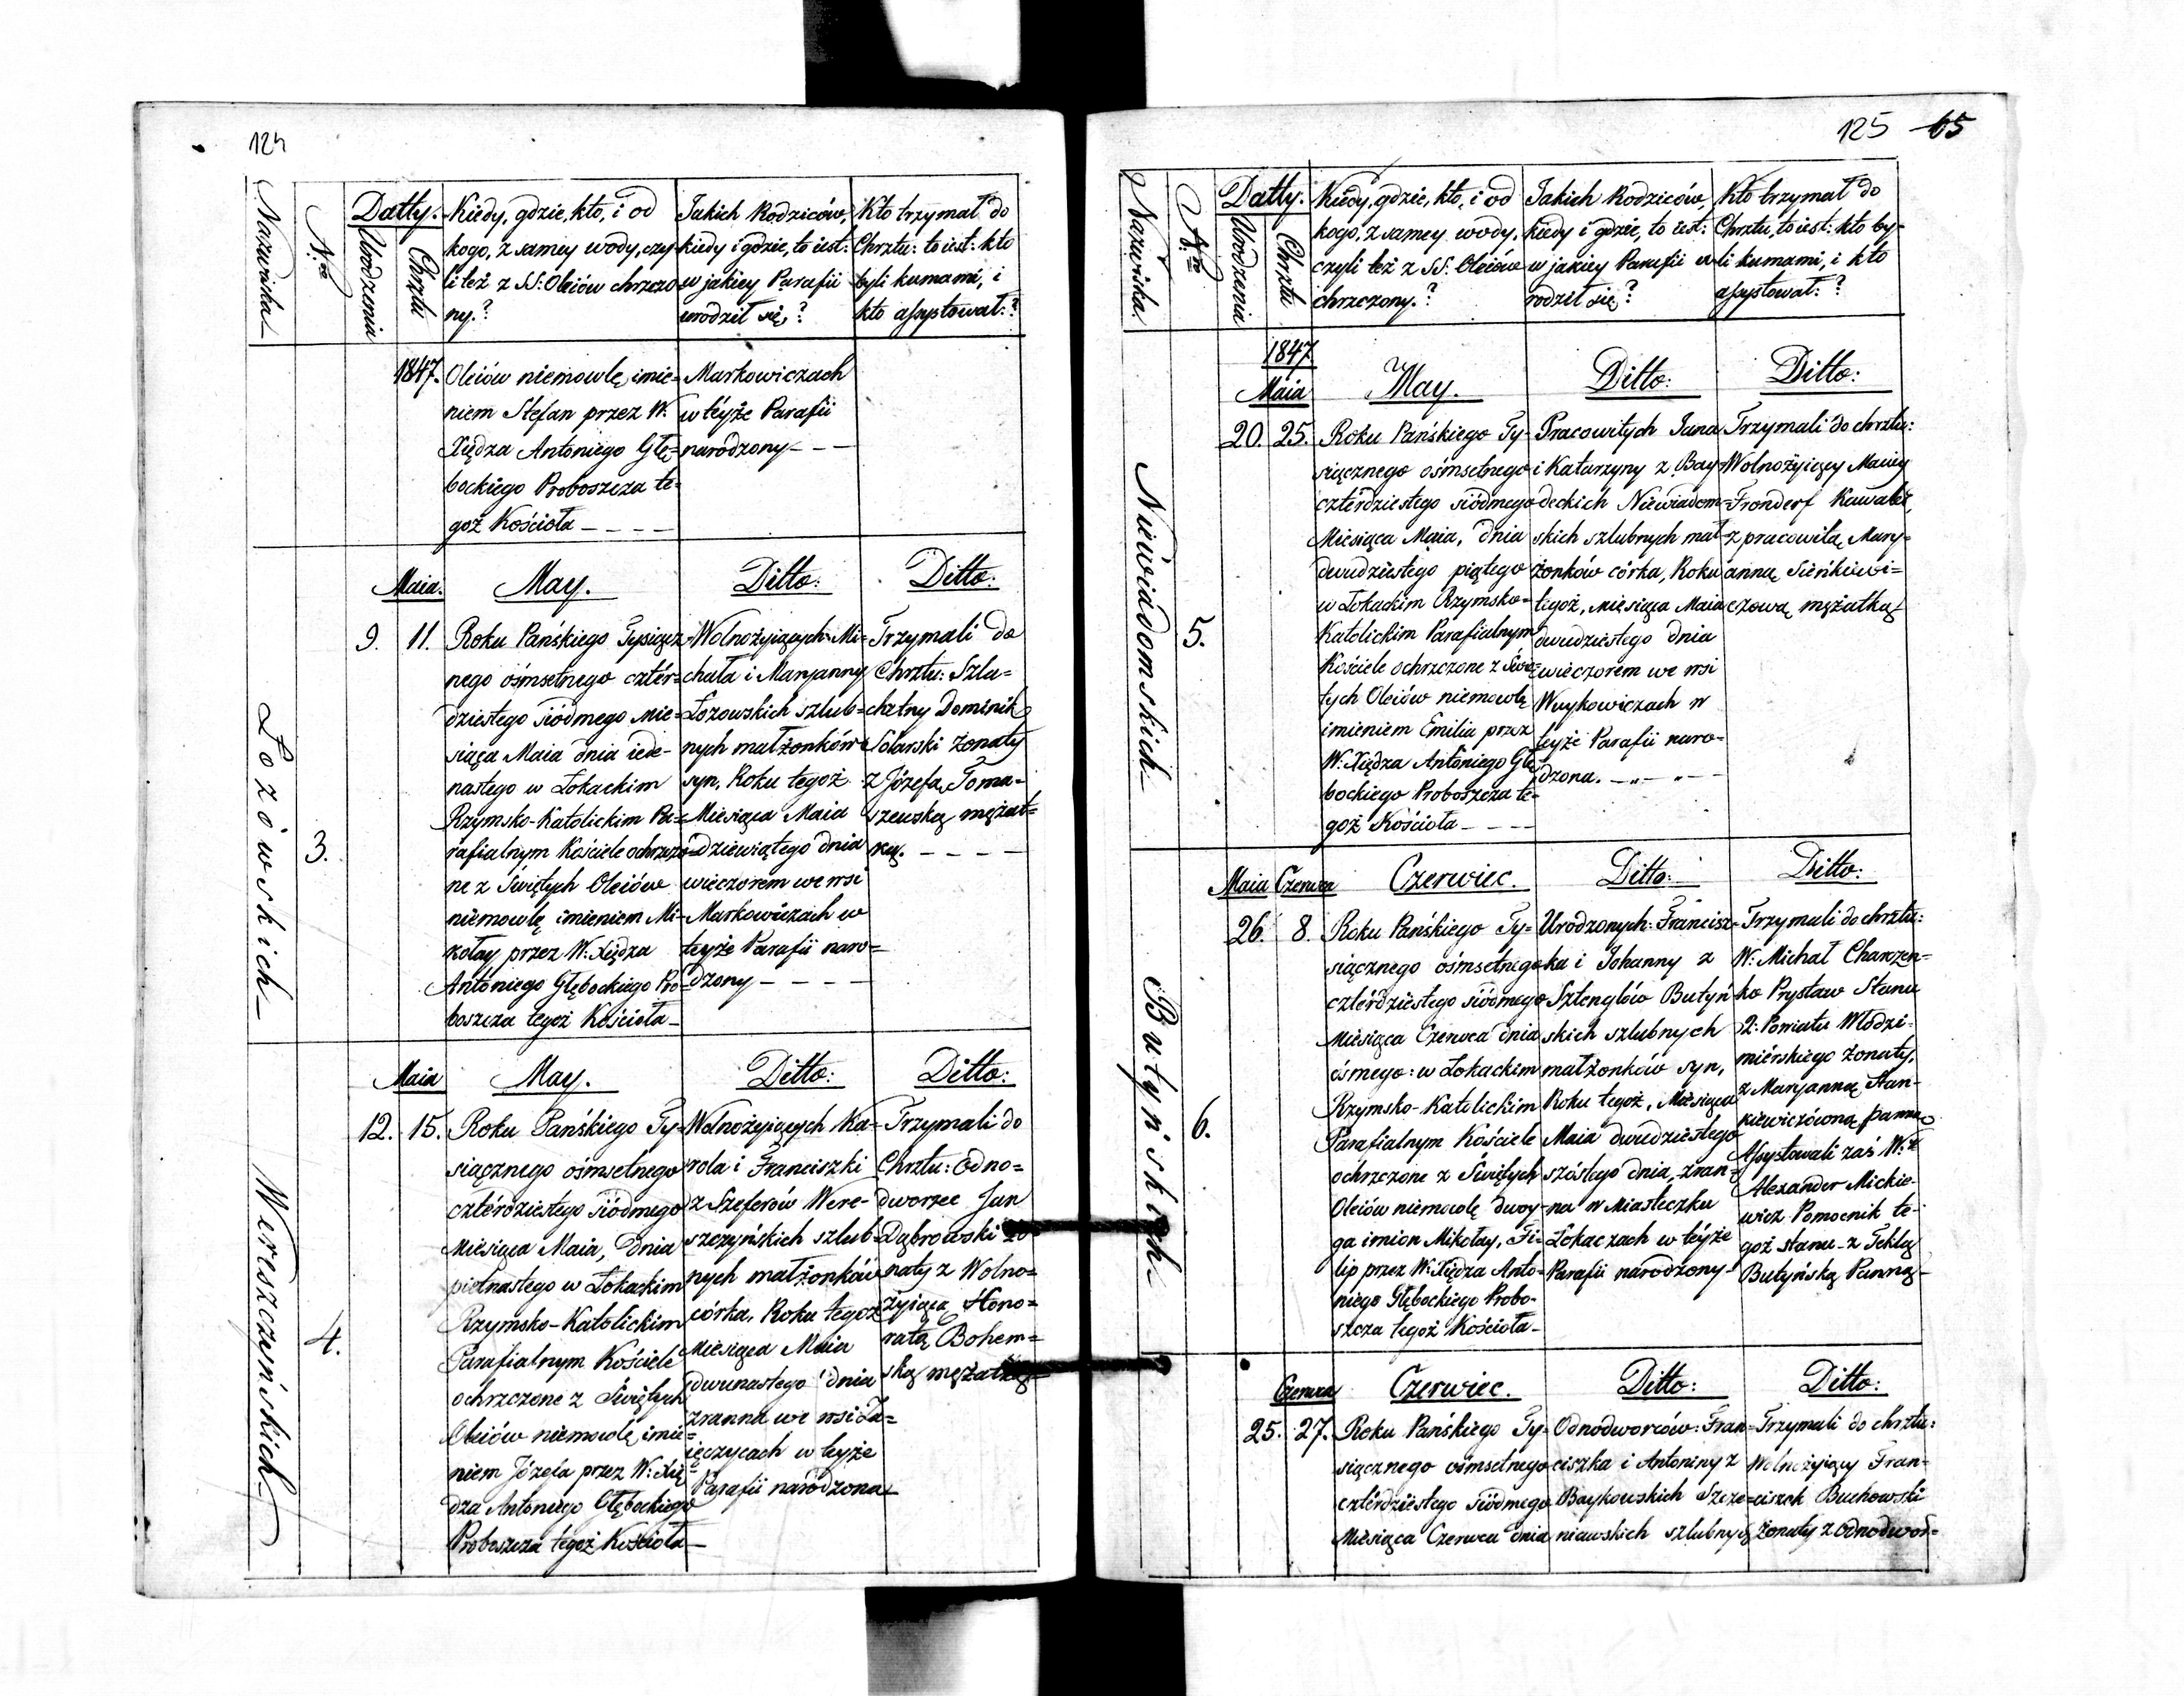 124
Nazwiska
Nro
Datty.
Urodzenia
Chrztu
Kiedy, gdzie, kto, i od
kogo, z samey wody, czy-
li też z SS: Oleiów chrzczo
ny.?
Jakich Rodziców,
kiedy i gdzie, to iest:
w jakiey Parafii
urodził się?
Kto trzymał do
Chrztu: to iest: kto
byli kumami, i
kto assystował:?
1847.
Oleiów niemowlę imie=
niem Stefan przez W.
Xiędza Antoniego Głę=
bockiego Proboszcza te=
goż Kościoła
Markowiczach
w teyże Parafii
narodzony
Łozowskich
3.
Maia.
9. 11.
May.
Roku Pańskiego Tysiącz
nego ośmsetnego czter=
dziestego siódmego Mie=
siąca Maia dnia iede-
nastego w Łokackim
Rzymsko-Katolickim Pa=
rafialnym Kościele ochrzczo
ne z Świętych Oleiów
niemowlę imieniem Mi-
kołay przez W: Xiędza
Antoniego Głębockiego Pro=
boszcza tegoż Kościoła
Ditto:
Wolnożyiących Mi=
chała i Maryanny
Łozowskich szlub=
nych małżonków
syn, Roku tegoż
Miesiąca Maia
dziewiątego dnia
wieczorem we wsi
Markowiczach w
teyże Parafii naro=
dzony
Ditto:
Trzymali do
Chrztu: Szla=
chetny Dominik
Solarski żonaty
z Józefą Toma=
szewską mężat=
ką.
Wereszczyńskich
4.
Maia
12. 15.
May.
Roku Pańskiego Ty=
siącznego ośmsetnego
czterdziestego siódmego
Miesiąca Maia, dnia
pietnastego w Łokackim
Rzymsko-Katolickim
Parafialnym Kościele
ochrzczone z Świętych
Oleiów niemowlę imie=
niem Józefa przez W: Xię=
dza Antoniego Głębockiego
Proboszcza tegoż Kościoła
Ditto:
Wolnożyiących Ka=
rola i Franciszki
z Szeferów Were-
szczyńskich szlub=
nych małżonków
córka, Roku tegoż
Miesiąca Maia
dwunastego dnia
zranna we wsi
w teyże
Parafii narodzona
Ditto:
Trzymali do
Chrztu: Odno=
dworzec Jan
Dąbrowski żo=
naty z Wolno=
żyiącą Hono=
ratą Bohem=
ską mężatką
125 65
Nazwiska
Nro
Datty.
Urodzenia
Chrztu
Kiedy, gdzie, kto, i od
kogo, z samey wody,
czyli też z SS: Oleiów
chrzczony.?
Jakich Rodziców,
kiedy i gdzie, to iest:
w jakiey Parafii u
rodził się?
Kto trzymał do
Chrztu, to iest: kto by-
li kumami, i kto
assystował:?
Niewiadomskich
5.
1847
Maia
20. 25.
May.
Roku Pańskiego Ty-
siącznego ośmsetnego
czterdziestego siódmego
Miesiąca Maia, dnia
dwudziestego piątego
w Łokackim Rzymsko=
Katolickim Parafialnym
Kościele ochrzczone z Świę=
tych Oleiów niemowlę
imieniem Emilia przez
W: Xiędza Antoniego Głę
bockiego Proboszcza te-
goż Kościoła
Ditto:
Pracowitych Jana
i Katarzyny z Bay
deckich Niewiadom=
skich szlubnych mał
żonków córka, Roku
tegoż, Miesiąca Maia
dwudziestego dnia
wieczorem we wsi
Wuykowiczach w
teyże Parafii naro=
dzona.
Ditto:
Trzymali do chrztu:
Wolnożyiący Maciey
Fronderf Kawaler
z pracowitą Mary=
anną Sieńkiewi=
czową mężatką
Butyńskich
6.
Maia Czerwca
26. 8.
Czerwiec.
Roku Pańskiego Ty=
siącznego ośmsetnego
czterdziestego siódmego
Miesiąca Czerwca dnia
ósmego: w Łokackim
Rzymsko-Katolickim
Parafialnym Kościele
ochrzczone z Świętych
Oleiów niemowlę dwoy-
ga imion Mikołay, Fi=
lip przez W: Xiędza Anto=
niego Głębockiego Probo-
szcza tegoż Kościoła
Ditto:
Urodzonych: Francisz=
ka i Johanny z
Sztenglów Butyń
skich szlubnych
małżonków syn,
Roku tegoż, Miesiąca
Maia dwudziestego
szóstego dnia, zran=
na w Miasteczku
Łokaczach w teyże
Parafii narodzony
Ditto:
Trzymali do chrztu:
W: Michał Charzen=
ko Prystaw Stanu
2: Powiatu Włodzi-
mierskiego żonaty,
z Maryanną Stan-
kiewiczówną panną
Assystowali zaś W:
Alexander Mickie-
wicz Pomocnik te-
goż stanu z Teklą
Butyńską Panną
Czerwca
25. 27.
Czerwiec.
Roku Pańskiego Ty-
siącznego ośmsetnego
czterdziestego siódmego
Miesiąca Czerwca dnia
Ditto:
Odnodworców: Fran=
ciszka i Antoniny z
Baykowskich Szcze=
niawskich szlubnych
Ditto:
Trzymali do chrztu:
Wolnożyiący Fran-
ciszek Buchowski
żonaty z Odnodwor=